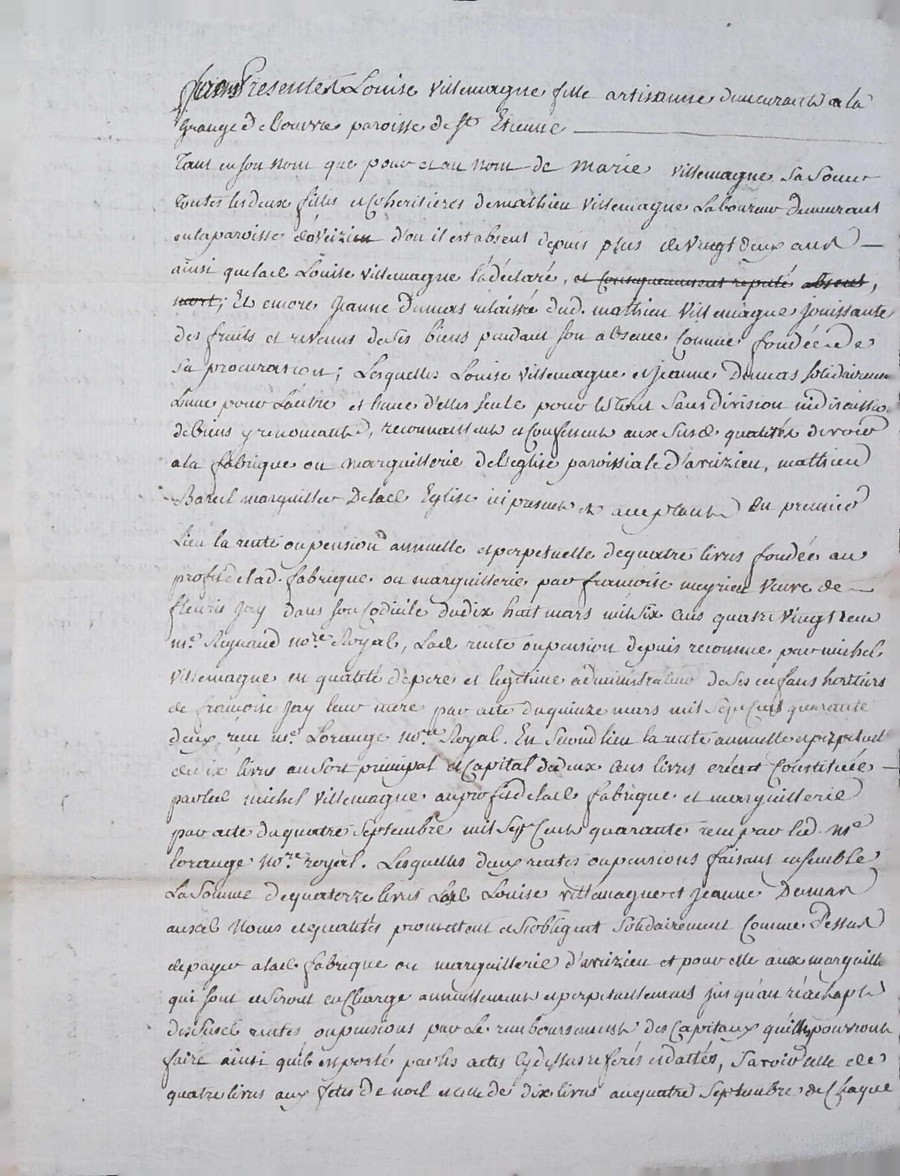 Furent Presentes Louise Villemagne fille artisanne demeurante a la
grange de bouvre paroisse de St Etienne
Tant en son nom que pour et au nom de Marie Villemagne sa soeur
toutes les deux filles et coheritieres de mathieu Villemagne Laboureur demeurant
en la paroisse d'Aveizieu d'ou il est absent depuis plus de vingt deux ans
ainsi que lad Louise Villemagne l'a déclaré, et consequemment reputé absent,
mort; Et encore Jeanne Dumas relaissée dud. mathieu Villemagne jouissante
des fruits et revenus de ses biens pendant son absence comme fondée de
sa procuration; Lesquelles Louise Villemagne et Jeanne Dumas solidairement
l'une pour l'autre et l'une d'elles seule pour le tout sans division ni discussion
de biens y renoncants, reconnaissent et confessent aux susd qualités devoir
a la fabrique ou marguillerie de l'eglise paroissiale d'avizieu, mathieu
Bareil marguillier de lad Eglise ici present et acceptant En premier
Lieu la rente ou pension annuelle et perpetuelle de quatre livres fondée au
profit de lad. fabrique ou marguillerie par francoise meyrieu veuve de
fleuris Jay dans son codicile du dix huit mars mil six cens quatre vingt reçu
me. Rignaud nore. Royal, Lad rente ou pension depuis reconnue par michel
Villemagne en qualité de pere et legitime administrateur de ses enfans heritiers
de francoise Jay leur mere par acte du quinze mars mil sept cens quarante
deux, reçu me. Lorange nore. Royal. En second lieu la rente annuelle et perpetuelle
de dix livres au sort principal et capital de deux cens livres créée et constituée
par led michel Villemagne au profit de lad fabrique et marguillerie
par acte du quatre Septembre mil sept cens quarante reçu par led. me
lorange nore. royal. Lesquelles deux rentes ou pensions faisant ensemble
La somme de quatorze livres Lad Louise Villemagne et Jeanne Dumas
auxd Noms et qualités promettent et s'obligent solidairement comme dessus
de payer a lad fabrique ou marguillerie d'avizieu et pour elle aux marguilliers
qui sont et seront en charge annuellement et perpetuellement jusqu'au reachapt
des susd rentes ou pensions par le remboursement des capitaux qu'elles pourront
faire ainsi qu'il est porté par les actes cy dessus referés et dattés, Savoir celle de
quatre livres aux fetes de noel et celle de dix livres au quatre Septembre de chaque